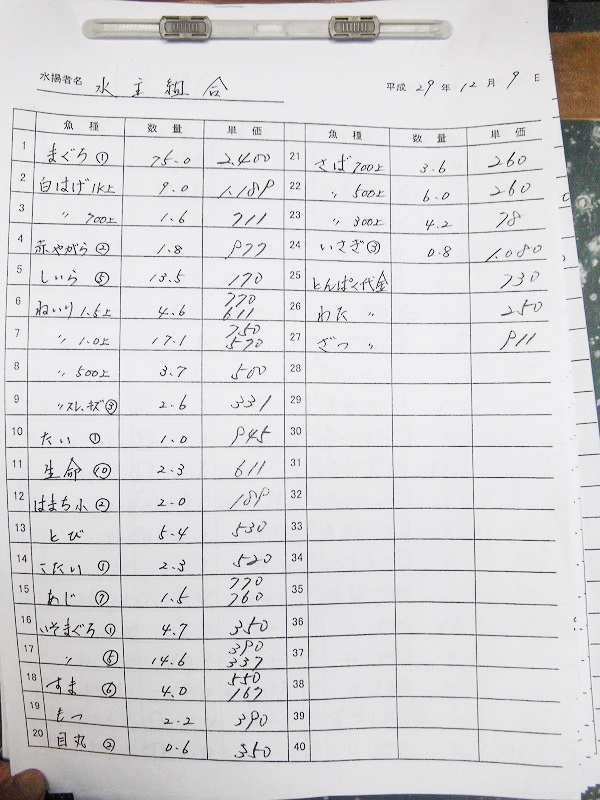 水揚者名 水主組合
平成 29 年 12 月 9 日
魚種 数量 単価
1 まぐろ① 75.0 2.400
2 白はげ1K上 9.0 1.189
3 〃 700上 1.6 711
4 赤やがら② 1.8 977
5 しいら⑤ 13.5 170
6 ねいり1.5上 4.6 770 611
7 〃 1.0上 17.1 750 570
8 〃 500上 3.7 500
9 〃スレ、キズ③ 2.6 331
10 たい① 1.0 945
11 生命⑩ 2.3 611
12 はまち小② 2.0 189
13 とび 5.4 530
14 こたい① 2.3 520
15 あじ⑦ 1.5 770 760
16 いそまぐろ① 4.7 350
17 〃 ⑤ 14.6 390 337
18 すま⑥ 4.0 550 167
19 もつ 2.2 390
20 目丸② 0.6 350
魚種 数量 単価
21 さば700上 3.6 260
22 〃 500上 6.0 260
23 〃 300上 4.2 78
24 いさぎ③ 0.8 1.080
25 とんぱく代金 730
26 わた 〃 250
27 ざつ 〃 911
28
29
30
31
32
33
34
35
36
37
38
39
40